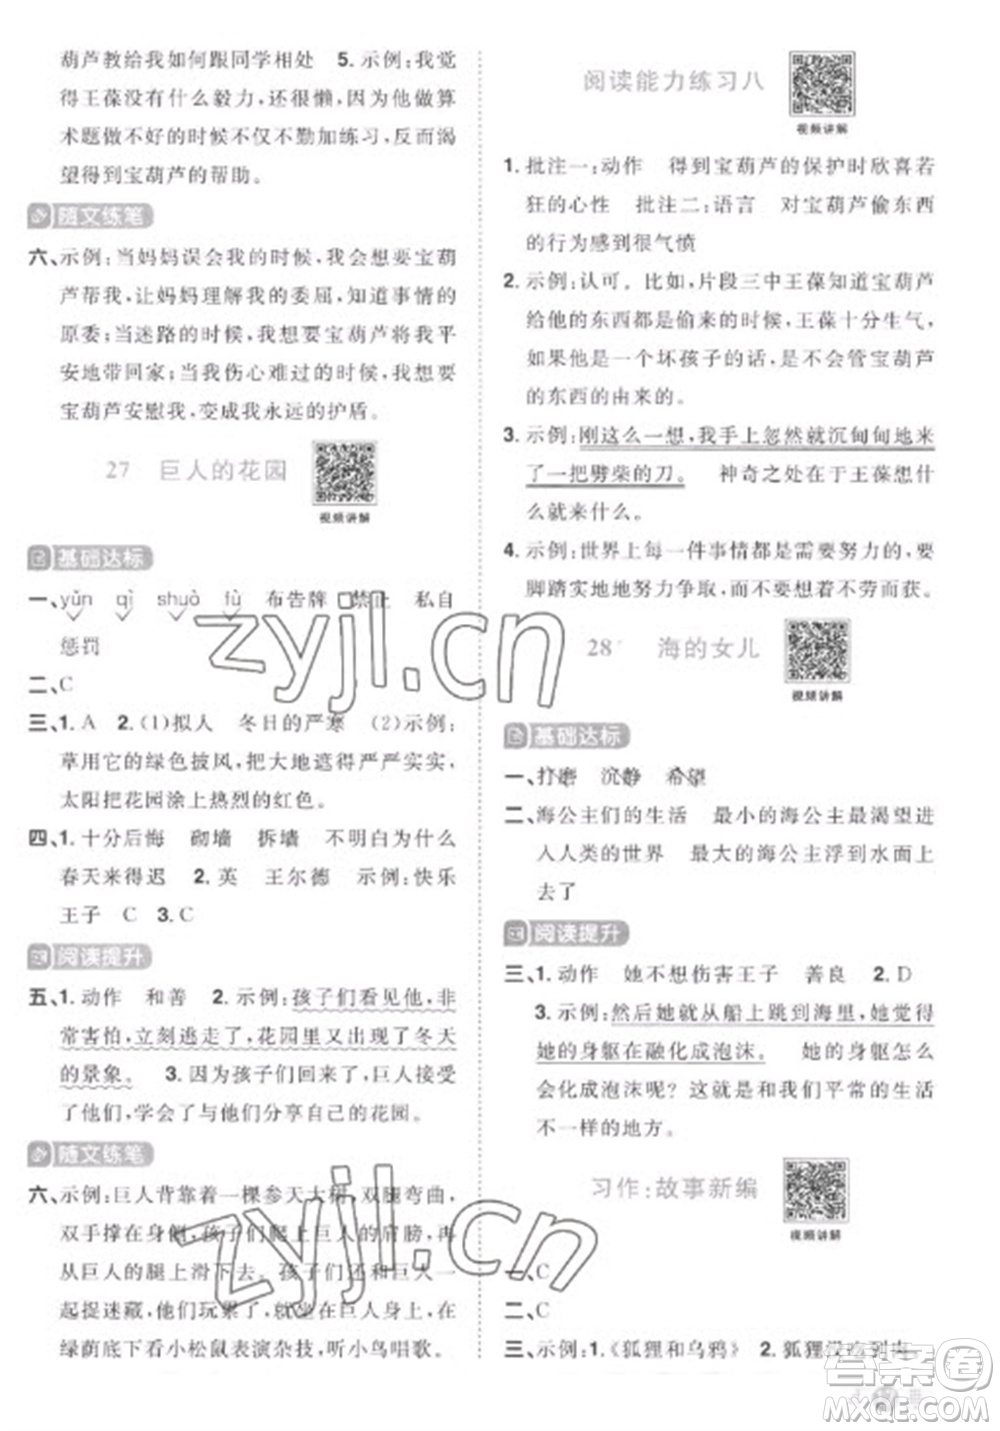 葫芦教给我如何跟同学相处 5.示例:我觉
得王葆没有什么毅力,还很懒,他做算
术题做不好的时候不仅不勤加练习,反而渴
望得到宝葫芦的帮助。
随文练笔
六、示例:当妈妈误会我的时候,我会想要宝葫
芦帮我,让妈妈理解我的委屈,知道事情的
原委;当迷路的时候,我想要宝葫芦将我平
安地带回家;当我伤心难过的时候,我想要
宝葫芦安慰我,变成我永远的护盾。
27 巨人的花园
视频讲解
基础达标
一、yǔn qì shuò fù 布告牌 禁止 私自
惩罚
二、C
三、1.A 2.(1)拟人 冬日的严寒 (2)示例:
草用它的绿色披风,把大地遮得严严实实,
太阳把花园涂上热烈的红色。
四、1.十分后悔 砌墙 拆墙 不明白为什么
春天来得迟 2.英 王尔德 示例:快乐
王子 C 3.C
阅读提升
五、1.动作 和善 2.示例:孩子们看见他,非
常害怕,立刻逃走了,花园里又出现了冬天
的景象。 3.因为孩子们的到来,巨人接受
了他们,学会了与他们分享自己的花园。
随文练笔
六、示例:巨人背靠着一棵参天大树,双腿弯曲,
双手撑在身侧,孩子们爬上巨人的肩膀,再
从巨人的腿上滑下去。孩子们还和巨人一
起捉迷藏,他们玩累了,就靠在巨人身上,在
绿荫底下看小松鼠表演杂技,听小鸟唱歌。
阅读能力练习八
视频讲解
1.批注一:动作 得到宝葫芦的保护时欣喜若
狂的心性 批注二:语言 对宝葫芦偷东西
的行为感到很气愤
2.示例:认可。比如,片段三中王葆知道宝葫芦
给他的东西都是偷来的时候,王葆十分生气,
如果他是一个坏孩子的话,是不会管宝葫芦
的东西的由来的。
3.示例:刚这么一想,我手上忽然就沉甸甸地来
了一把劈柴的刀。 神奇之处在于王葆想什
么就来什么。
4.示例:世界上每一件事情都是需要努力的,要
脚踏实地地努力争取,而不要想着不劳而获。
28 海的女儿
视频讲解
基础达标
一、打磨 沉静 希望
二、海公主们的生活 最小的海公主最渴望进
入人类的世界 最大的海公主浮到水面上
去了
阅读提升
三、1.动作 她不想伤害王子 善良 2.D
3.示例:然后她就从船上跳到海里,她觉得
她的身躯在融化成泡沫。 她的身躯怎么
会化成泡沫呢?这就是和我们平常的生活
不一样的地方。
习作:故事新编
视频讲解
一、C
二、C
三、示例:1.《狐狸和乌鸦》 2.狐狸没吃到肉,
zyjl.cn
zyjl.cn
答案圈